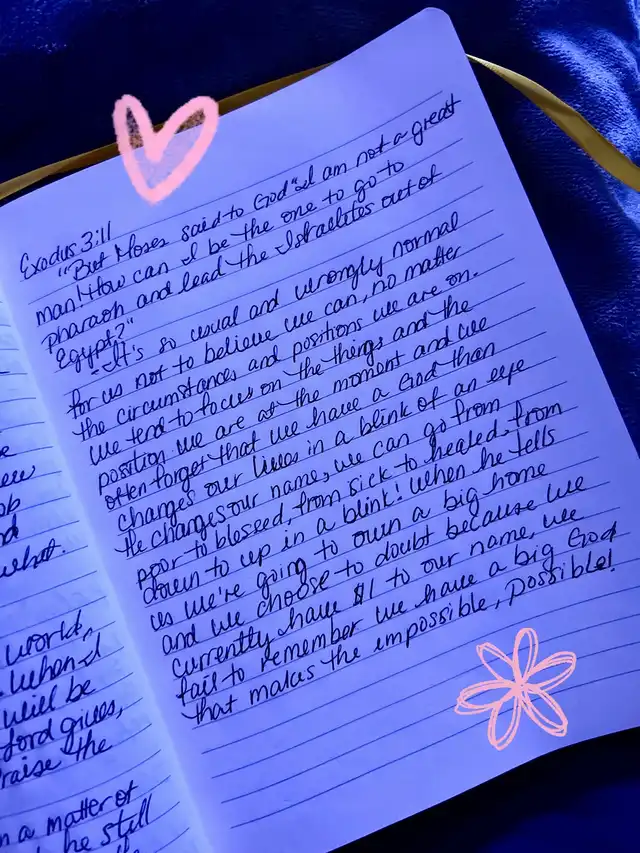 Exodus 3:11
"But Moses said to God "I am not a great
man! How can I be the one to go to
pharaoh and lead the Israelites out of
Egypt?"
- It's so usual and wrongly normal
for us not to believe we can, no matter
the circumstances and positions we are on.
We tend to focus on the things and the
position we are at the moment and we
often forget that we have a God than
changes our lives in a blink of an eye
He changes our name, we can go from
poor to blessed, from sick to healed, from
down to up in a blink! When he tells
us we're going to own a big home
and we choose to doubt because we
currently have $1 to our name, we
fail to remember we have a big God
that makes the impossible, possible!
what.
world,
When I
will be
ford gives,
raise the
n a matter of
he still